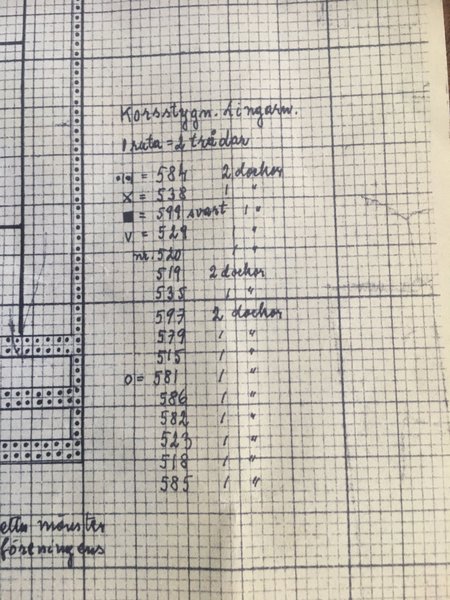 Korsstygn. Lingarn.
1 ruta = 2 trådar
•|• = 584 2 dockor
X = 538 1 "
■ = 599 svart 1 "
V = 529 1 "
nr. 520 1 "
519 2 dockor
535 1 "
597 2 dockor
579 1 "
515 1 "
O = 581 1 "
586 1 "
582 1 "
523 1 "
518 1 "
585 1 "
etta mönster
föreningens